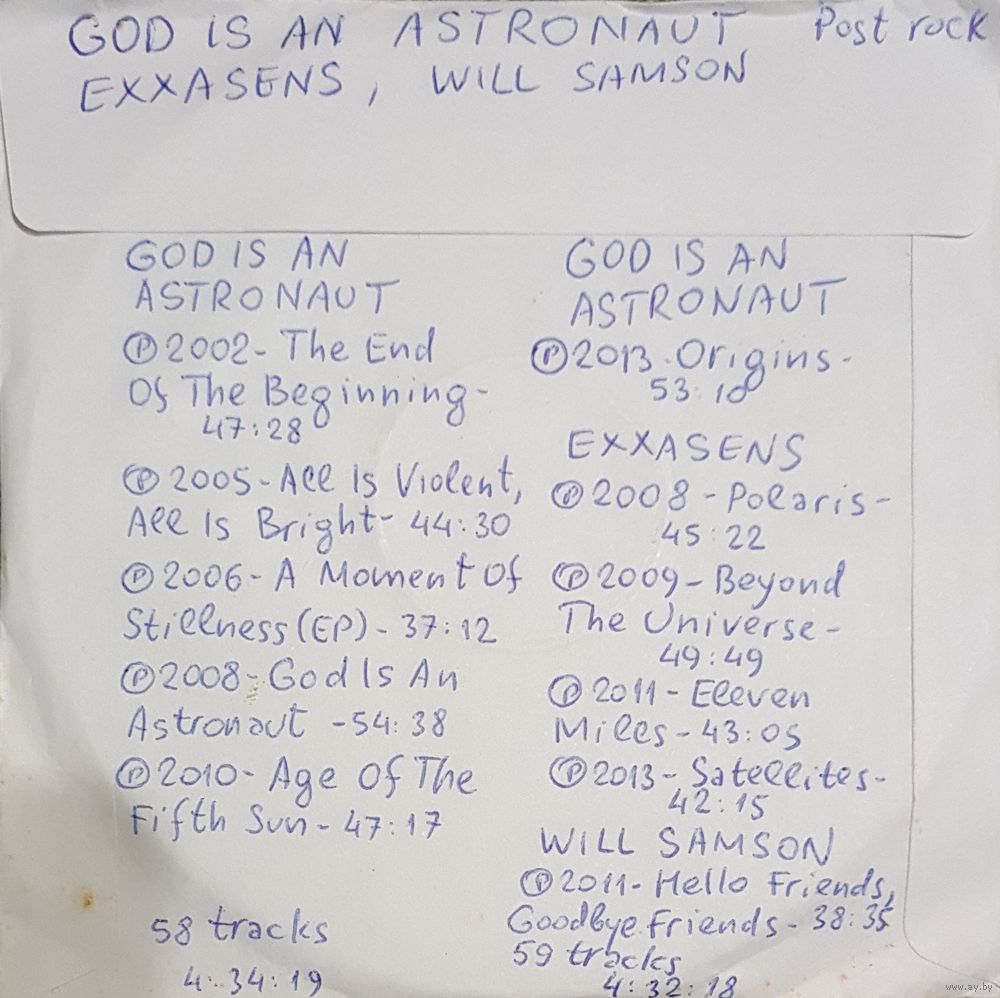 GOD IS AN ASTRONAUT Post rock
EXXASENS, WILL SAMSON
GOD IS AN
ASTRONAUT
Ⓟ2002- The End
Of The Beginning-
47:28
Ⓟ2005-All Is Violent,
All Is Bright- 44:30
Ⓟ2006- A Moment Of
Stillness(EP)- 37:12
Ⓟ2008-God Is An
Astronaut -54:38
Ⓟ2010- Age Of The
Fifth Sun- 47:17
58 tracks
4:34:19
GOD IS AN
ASTRONAUT
Ⓟ2013-Origins-
53:18
EXXASENS
Ⓟ2008-Polaris-
45:22
Ⓟ2009-Beyond
The Universe-
49:49
Ⓟ2011-Eleven
Miles-43:05
Ⓟ2013-Satellites-
42:15
WILL SAMSON
Ⓟ2011-Hello Friends,
Goodbye Friends- 38:35
59 tracks
4:32:18
www.ay.by